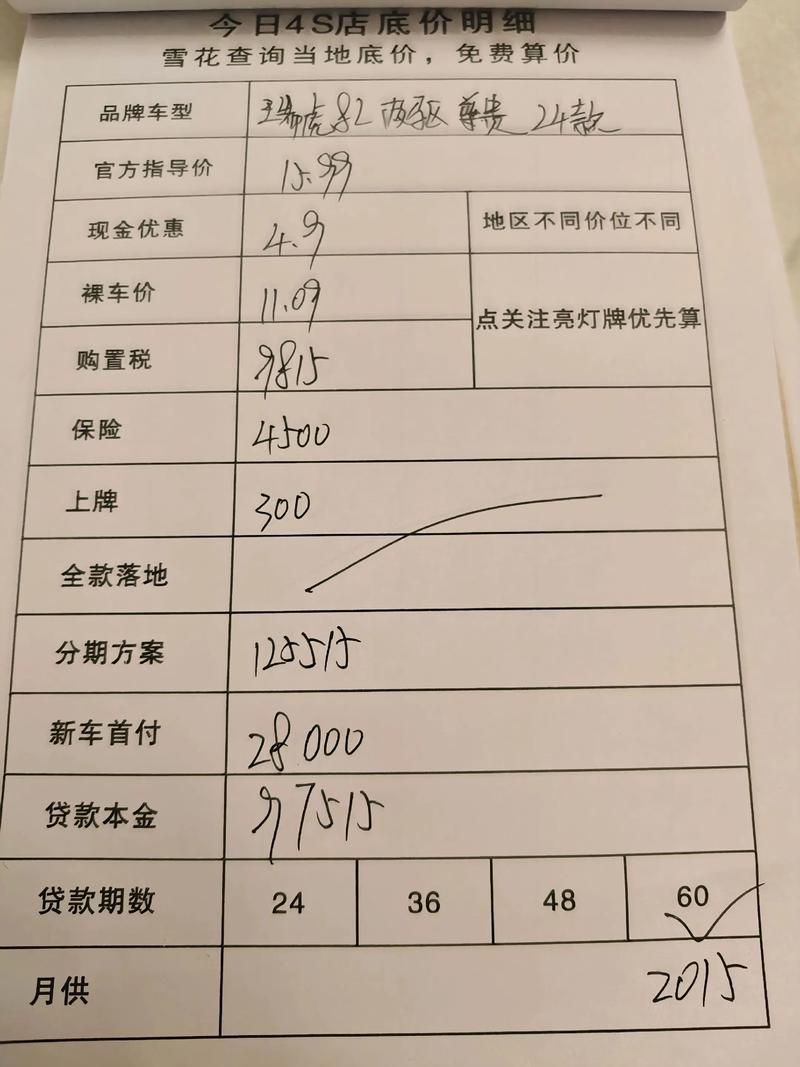 今日4S店底价明细
雪花查询当地底价，免费算价
品牌车型 瑞虎8L 两驱 尊贵 24款
官方指导价 15.99
现金优惠 4.9 地区不同价位不同
裸车价 11.09
点关注亮灯牌优先算
购置税 9815
保险 4500
上牌 300
全款落地
分期方案 125515
新车首付 28000
贷款本金 97515
贷款期数 24 36 48 60
月供 2015